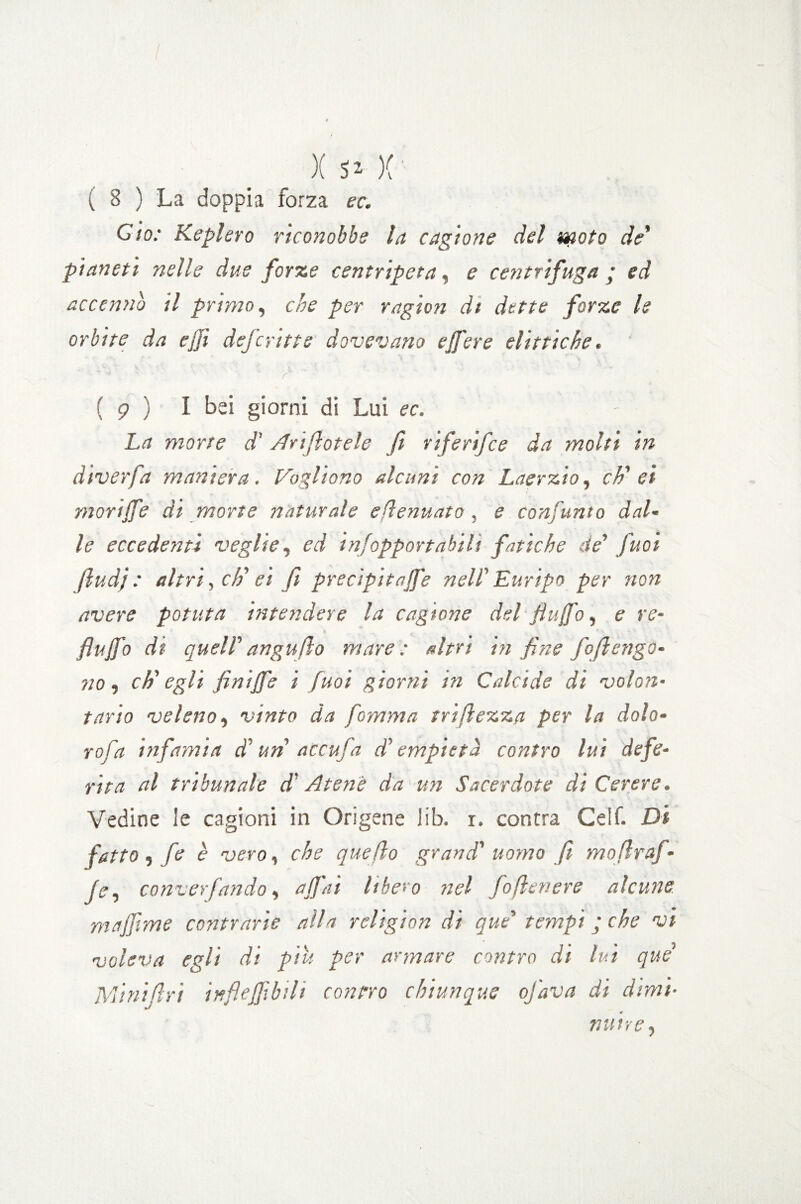 )( 52 )(
( 8 ) La doppia forza ec.
Gio: Keplero riconobbe la cagione del moto de'
pianeti nelle due forze centripeta, e centrifuga; ed
accennò il primo, che per ragion di dette forze le
orbite da eſſi deſcritte dovevano eſſere elittiche.
( 9 ) I bei giorni di Lui ec.
La morte d' Ariſtotele ſi riferiſce da molti in
diverſa maniera. Vogliono alcuni con Laerzio, ch' ei
moriſſe di morte naturale eſtenuato, e conſunto dal-
le eccedenti veglie, ed inſopportabili fatiche de' ſuoi
ſtudj: altri, ch' ei ſi precipitaſſe nell' Euripo per non
avere potuta intendere la cagione del fluſſo, e re-
fluſſo di quell' anguſto mare: altri in fine ſoſtengo-
no, ch' egli finiſſe i ſuoi giorni in Calcide di volon-
tario veleno, vinto da ſomma triſtezza per la dolo-
roſa infamia d' un' accuſa d' empietà contro lui defe-
rita al tribunale d' Atene da un Sacerdote di Cerere.
Vedine le cagioni in Origene lib. 1. contra Celſ. Di
fatto, ſe è vero, che queſto grand' uomo ſi moſtraſ-
ſe, converſando, aſſai libero nel ſoſtenere alcune
maſſime contrarie alla religion di que' tempi; che vi
voleva egli di più per armare contro di lui que'
Miniſtri infleſſibili contro chiunque oſava di dimi-
nuire,